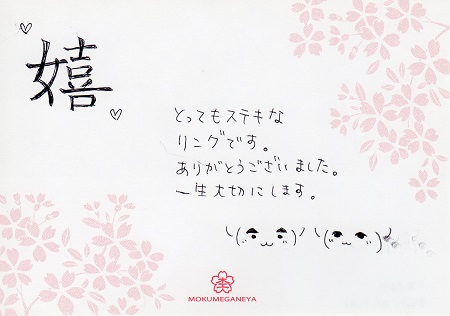 嬉
とってもステキな
リングです。
ありがとうございました。
一生大切にします。
MOKUMEGANEYA